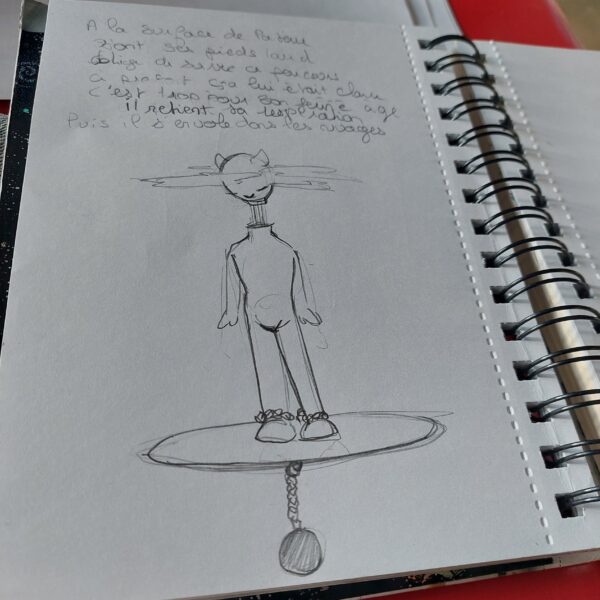 A la surface de l'eau
sont ses pieds lourd
obligé de suivre ce parcours
à présent ça lui était clair
c'est trop pour son jeune age
Il retient sa respiration
Puis il s'envole dans les nuages